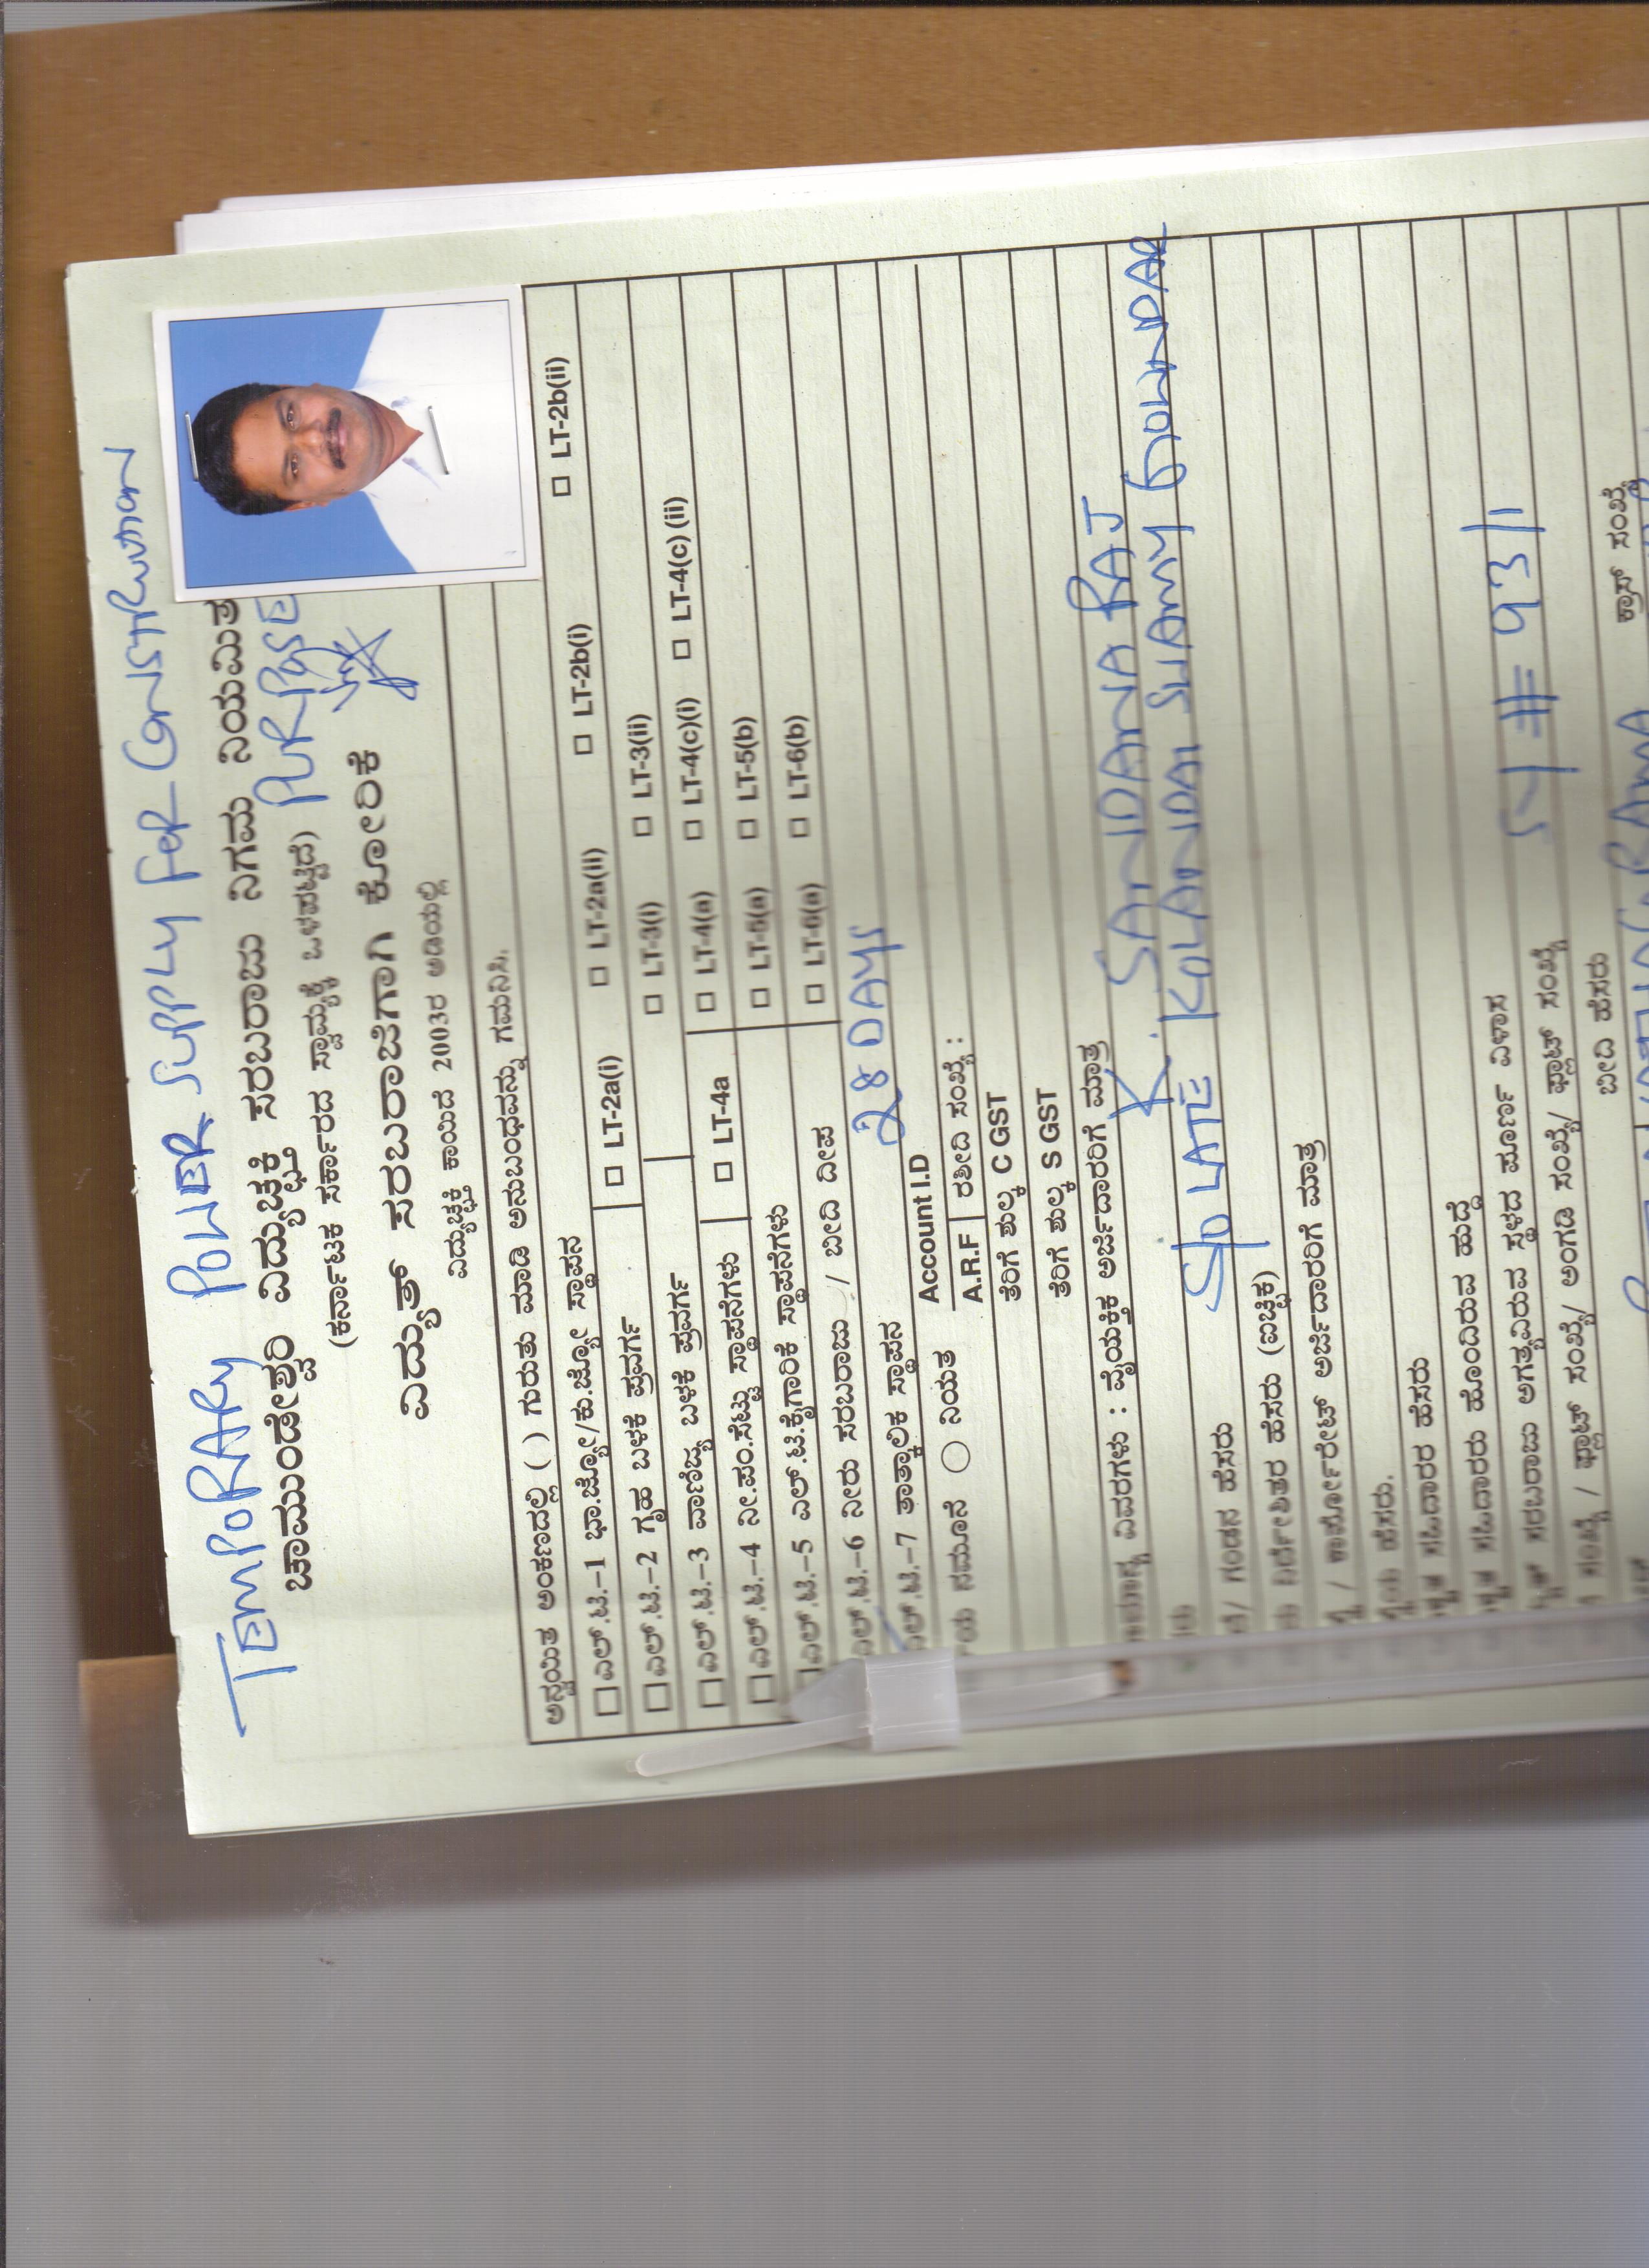 TEMPORARY POWER SUPPLY FOR CONSTRUCTION
ಚಾಮುಂಡೇಶ್ವರಿ ವಿದ್ಯುಚ್ಛಕ್ತಿ ಸರಬರಾಜು ನಿಗಮ ನಿಯಮಿತ
(ಕರ್ನಾಟಕ ಸರ್ಕಾರದ ಸ್ವಾಮ್ಯಕ್ಕೆ ಒಳಪಟ್ಟಿದೆ) PURPOSE
ವಿದ್ಯುತ್ ಸರಬರಾಜಿಗಾಗಿ ಕೋರಿಕೆ
ವಿದ್ಯುಚ್ಛಕ್ತಿ ಕಾಯಿದೆ 2003ರ ಅಡಿಯಲ್ಲಿ
ಅನ್ವಯಿತ ಅಂಕಣದಲ್ಲಿ ( ) ಗುರುತು ಮಾಡಿ ಅನುಬಂಧವನ್ನು ಗಮನಿಸಿ.
☐ ಎಲ್.ಟಿ.–1 ಭಾ.ಜ್ಯೋ/ಕು.ಜ್ಯೋ ಸ್ಥಾಪನ
☐ ಎಲ್.ಟಿ.–2 ಗೃಹ ಬಳಕೆ ಪ್ರವರ್ಗ ☐ LT-2a(i) ☐ LT-2a(ii) ☐ LT-2b(i) ☐ LT-2b(ii)
☐ ಎಲ್.ಟಿ.–3 ವಾಣಿಜ್ಯ ಬಳಕೆ ಪ್ರವರ್ಗ ☐ LT-3(i) ☐ LT-3(ii)
☐ ಎಲ್.ಟಿ.–4 ನೀ.ಪಂ.ಸೆಟ್ಟು ಸ್ಥಾಪನೆಗಳು ☐ LT-4a ☐ LT-4(a) ☐ LT-4(c)(i) ☐ LT-4(c) (ii)
☐ ಎಲ್.ಟಿ.–5 ಎಲ್.ಟಿ.ಕೈಗಾರಿಕೆ ಸ್ಥಾಪನೆಗಳು ☐ LT-5(a) ☐ LT-5(b)
ಎಲ್.ಟಿ.–6 ನೀರು ಸರಬರಾಜು / ಬೀದಿ ದೀಪ ☐ LT-6(a) ☐ LT-6(b)
ಎಲ್.ಟಿ.–7 ತಾತ್ಕಾಲಿಕ ಸ್ಥಾಪನ 28 DAYS
ನಮೂನೆ ○ ನಿಯತ Account I.D
A.R.F ರಶೀದಿ ಸಂಖ್ಯೆ :
ತೆರಿಗೆ ಶುಲ್ಕ C GST
ತೆರಿಗೆ ಶುಲ್ಕ S GST
ವಿವರಗಳು : ವೈಯಕ್ತಿಕ ಅರ್ಜಿದಾರರಿಗೆ ಮಾತ್ರ
K. SANDANA RAJ
ಗಂಡನ ಹೆಸರು S/O LATE KOLANDAI SWAMY GOUNDAR
ನಿರ್ದೇಶಿತರ ಹೆಸರು (ಐಚ್ಛಿಕ)
/ ಕಾರ್ಪೋರೇಟ್ ಅರ್ಜಿದಾರರಿಗೆ ಮಾತ್ರ
ಹೆಸರು.
ಸಹಿದಾರರ ಹೆಸರು
ಸಹಿದಾರರು ಹೊಂದಿರುವ ಹುದ್ದೆ
ಸರಬರಾಜು ಅಗತ್ಯವಿರುವ ಸ್ಥಳದ ಪೂರ್ಣ ವಿಳಾಸ
/ ಫ್ಲಾಟ್ ಸಂಖ್ಯೆ/ ಅಂಗಡಿ ಸಂಖ್ಯೆ/ ಪ್ಲಾಟ್ ಸಂಖ್ಯೆ SY # 93/1
ಬೀದಿ ಹೆಸರು ಕ್ರಾಸ್ ಸಂಖ್ಯೆ